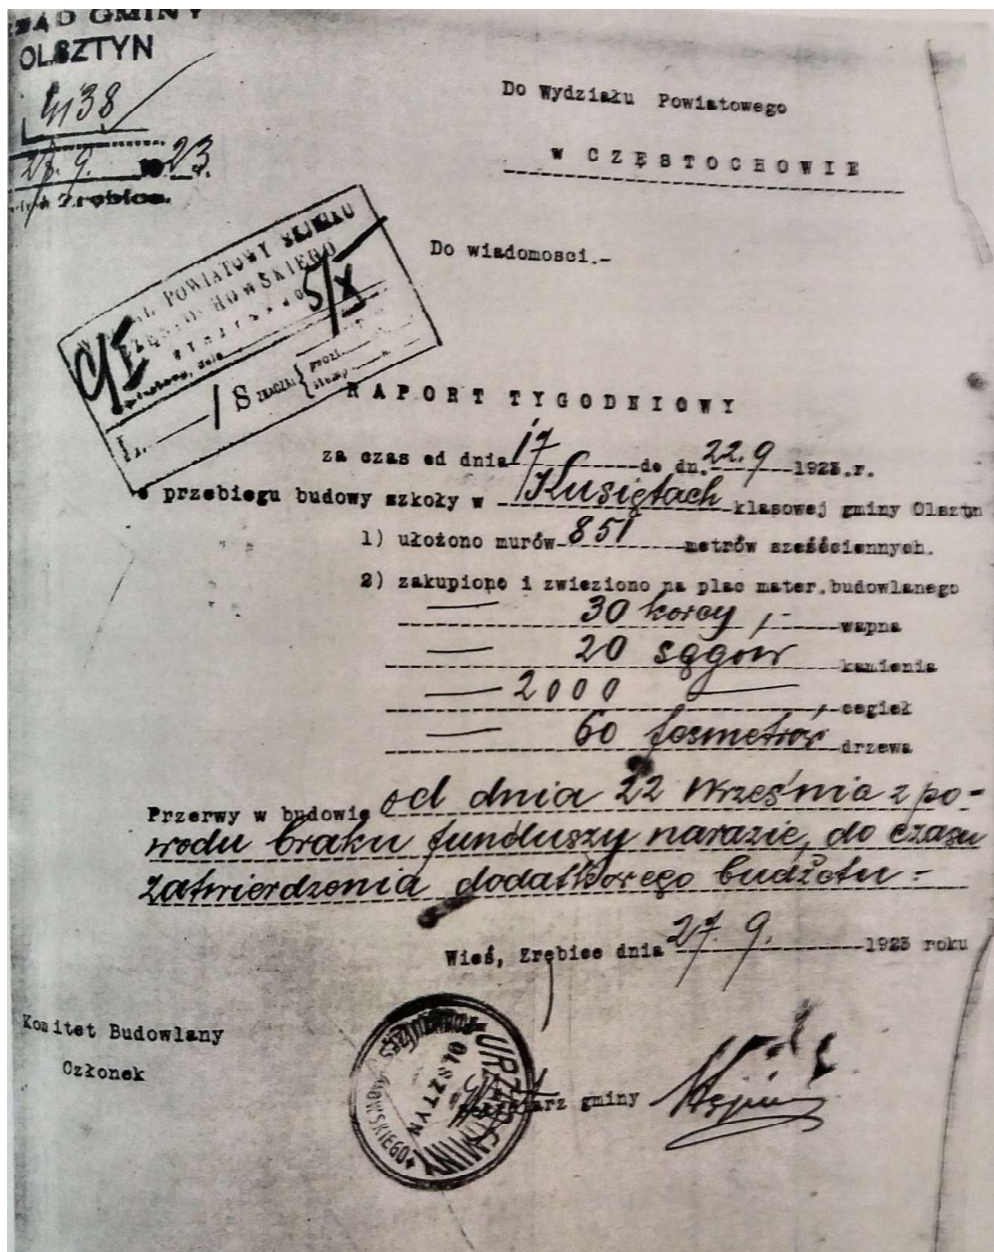 URZĄD GMINY
OLSZTYN
4138
27. 9. 1923.
Zrębice.
Do Wydziału Powiatowego
W CZĘSTOCHOWIE
POWIATOWY SEJMIKU
5/X
L. / S ZNACZKI
Do wiadomosci.-
RAPORT TYGODNIOWY
za czas od dnia 17 do dn. 22.9 1923.r.
o przebiegu budowy szkoły w Kusiętach klasowej gminy Olsztyn
1) ułożono murów 851 metrów sześciennych.
2) zakupiono i zwieziono na plac mater.budowlanego
— 30 korcy, - wapna
— 20 sągów kamienia
— 2000 — , cegieł
— 60 fosmetrów drzewa
Przerwy w budowie od dnia 22 Września z po-
wodu braku funduszy narazie, do czasu
zatwierdzenia dodatkowego budżetu -
Wieś, Zrębice dnia 27. 9. 1923 roku
Komitet Budowlany
Członek
URZĄD GMINY OLSZTYN
gminy